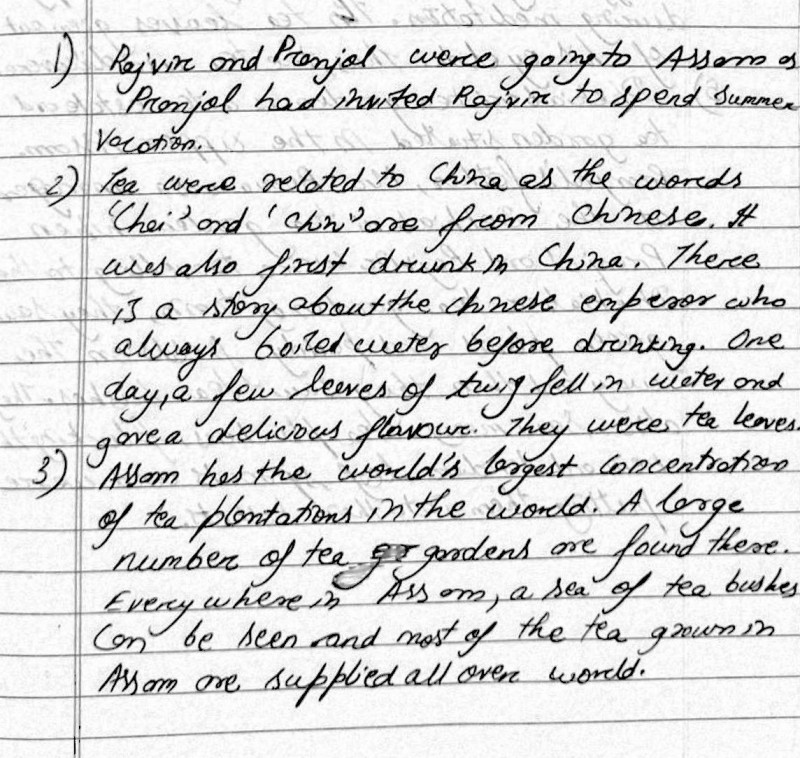 1) Rajvir and Pranjol were going to Assam as
Pranjol had invited Rajvir to spend summer
Vacation.
2) Tea were related to China as the words
'Chai' and 'Chin' are from Chinese. It
was also first drunk in China. There
is a story about the chinese emperor who
always boiled water before drinking. One
day, a few leaves of twig fell in water and
gave a delicious flavour. They were tea leaves.
3) Assam has the world's largest concentration
of tea plantations in the world. A large
number of tea gardens are found there.
Everywhere in Assam, a sea of tea bushes
Can be seen and most of the tea grown in
Assam are supplied all over world.